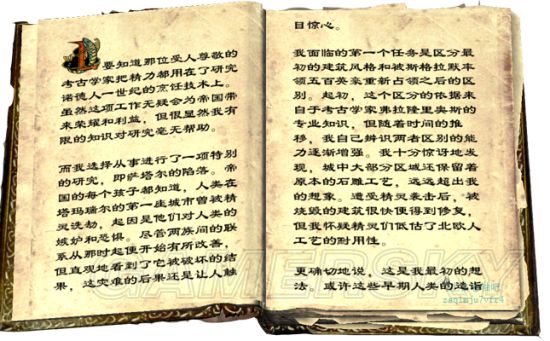 要知道那位受人尊敬的
考古学家把精力都用在了研究
诺德人一世纪的烹饪技术上。
虽然这项工作无疑会为帝国带
来荣耀和利益，但很显然我有
限的知识对研究毫无帮助。
而我选择从事进行了一项特别
的研究，即萨塔尔的陷落。帝
国的每个孩子都知道，人类在
塔玛瑞尔的第一座城市曾被精
灵洗劫，起因是他们对人类的
嫉妒和恐惧。尽管两族间的联
系从那时起便开始有所改善，
但直观地看到了它被破坏的结
果，这灾难的后果还是让人触
目惊心。
我面临的第一个任务是区分最
初的建筑风格和被斯格拉默率
领五百英豪重新占领之后的区
别。起初，这个区分的依据来
自于考古学家弗拉隆里奥斯的
专业知识，但随着时间的推
移，我自己辨识两者区别的能
力逐渐增强。我十分惊讶地发
现，城中大部分区域还保留着
原本的石雕工艺，远远超出我
的想象。遭受精灵袭击后，被
烧毁的建筑很快便得到修复，
但我怀疑精灵们低估了北欧人
工艺的耐用性。
更确切地说，这是我最初的想
法。或许这些早期人类的造诣
GAMERSKY
zaq1mju7vfr4